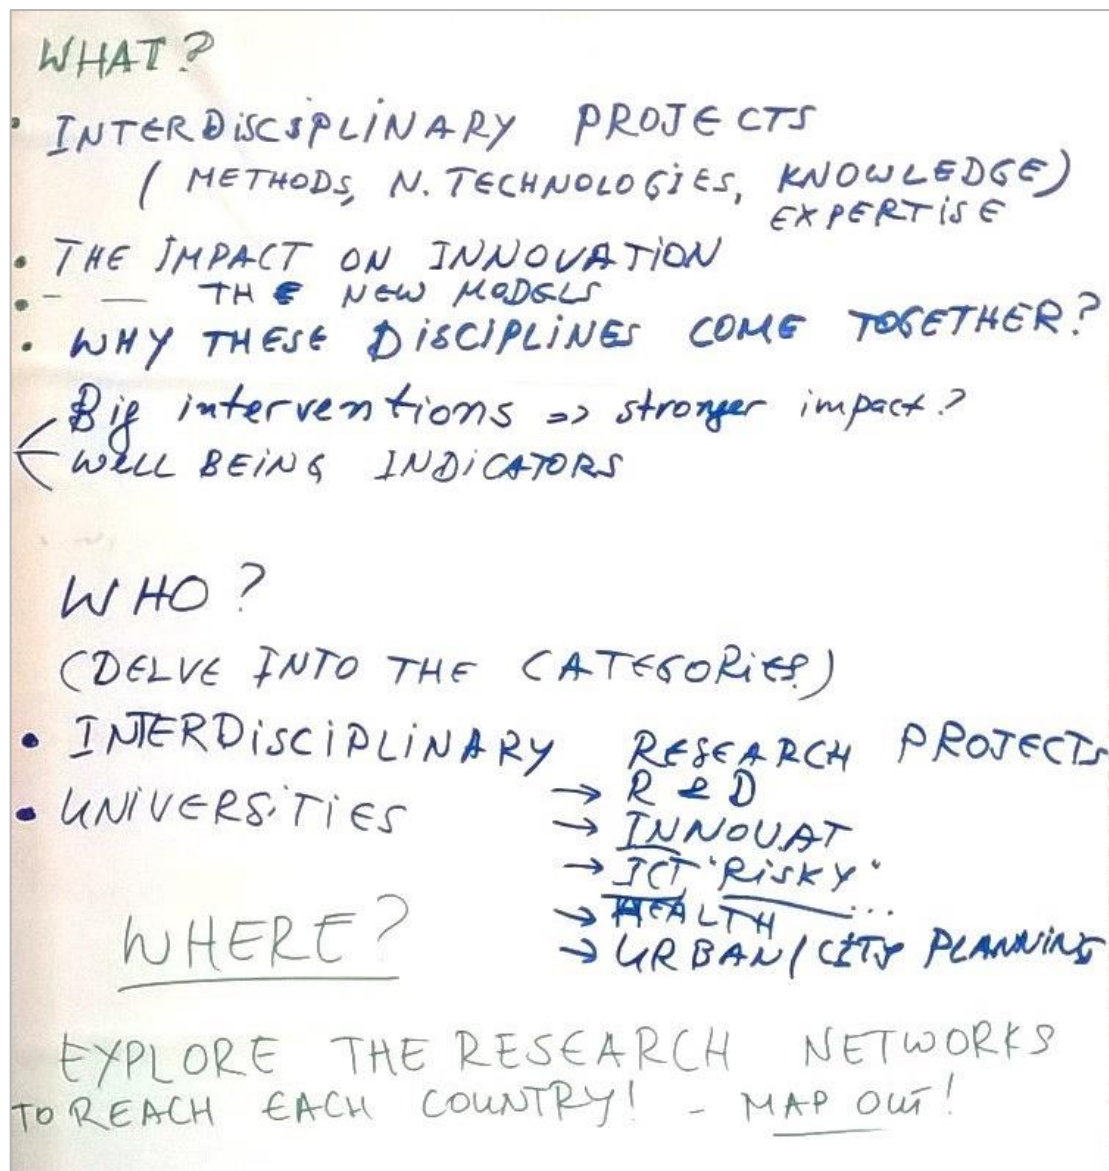 WHAT?
• INTERDISCIPLINARY PROJECTS
( METHODS, N. TECHNOLOGIES, KNOWLEDGE)
EXPERTISE
• THE IMPACT ON INNOVATION
• - — THE NEW MODELS
• WHY THESE DISCIPLINES COME TOGETHER?
Big interventions => stronger impact?
WELL BEING INDICATORS
WHO?
(DELVE INTO THE CATEGORIES)
• INTERDISCIPLINARY RESEARCH PROJECTS
• UNIVERSITIES
→ R & D
→ INNOVAT
→ ICT "RISKY"
...
→ HEALTH
→ URBAN/CITY PLANNING
WHERE?
EXPLORE THE RESEARCH NETWORKS
TO REACH EACH COUNTRY! - MAP OUT!